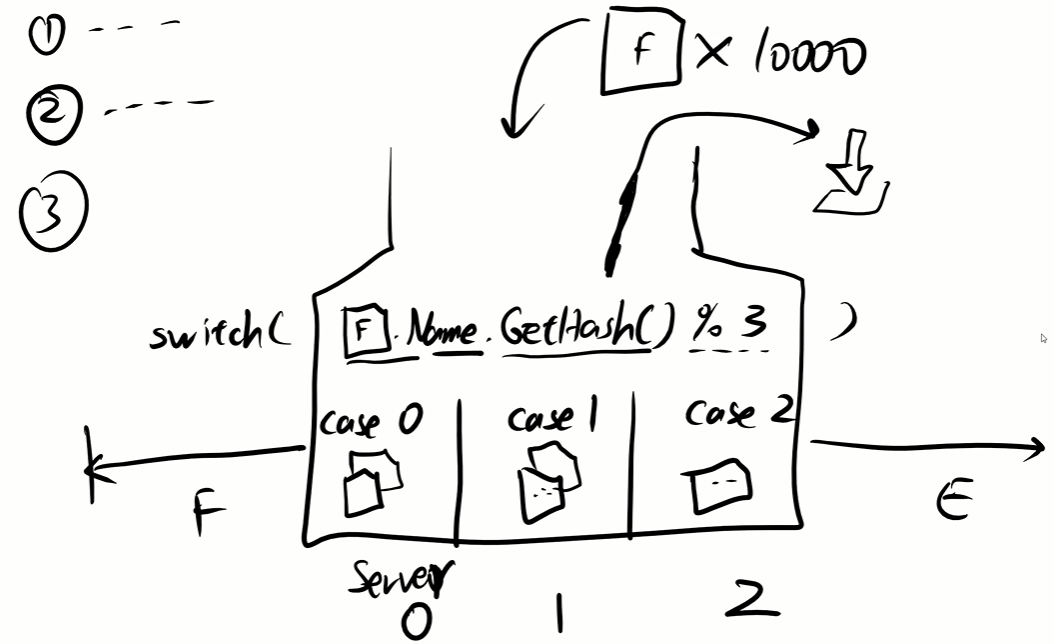 ① ----
② -----
③
F × 10000
switch( F.Name.GetHash() % 3 )
case 0 case 1 case 2
F E
Server
0 1 2